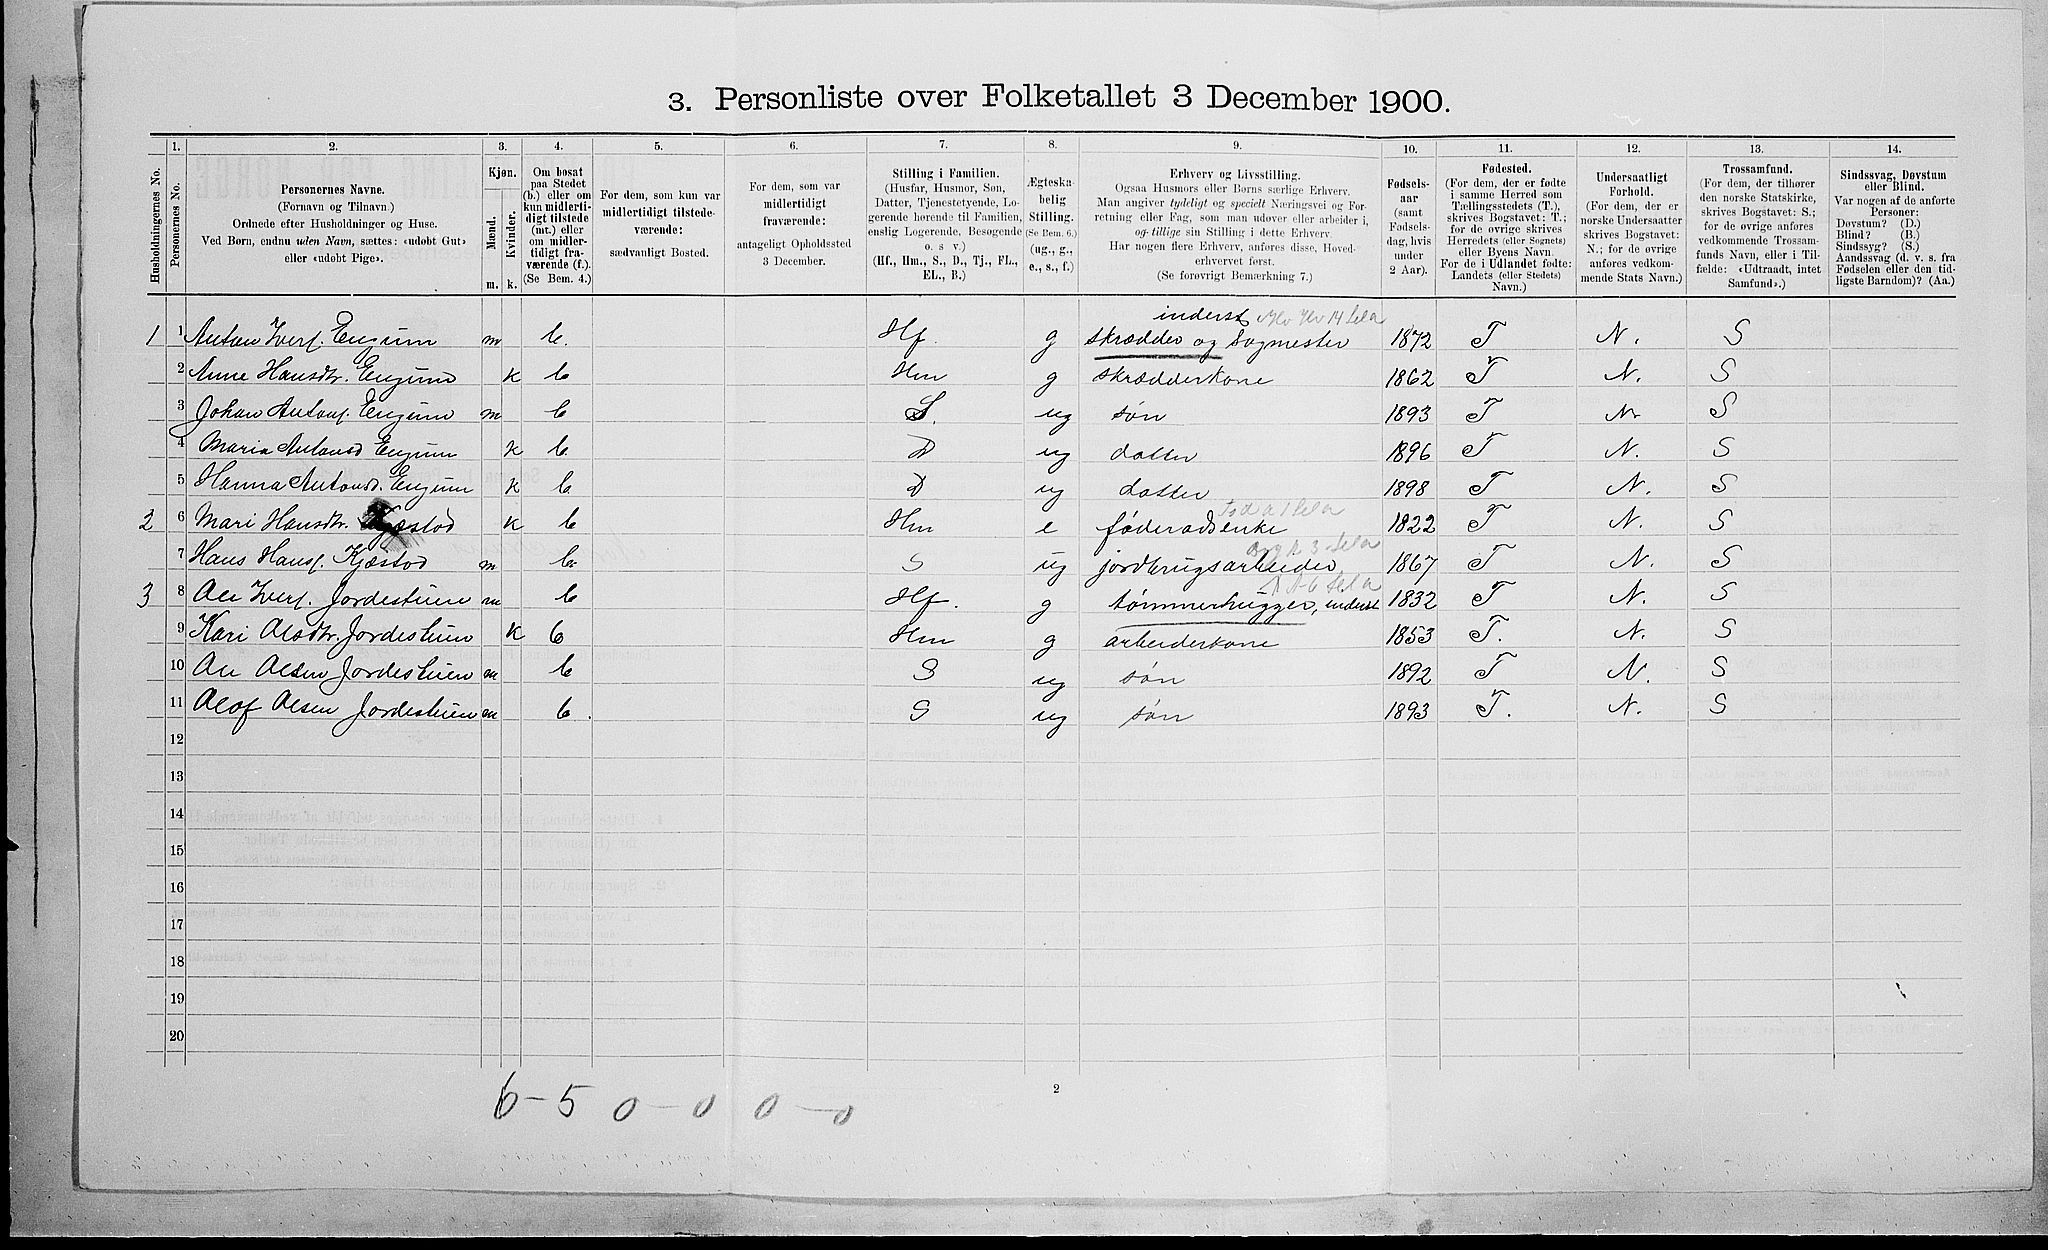 3. Personliste over Folketallet 3 December 1900.
Husholdningernes No.
1.
Personernes No.
2.
Personernes Navne.
(Fornavn og Tilnavn.)
Ordnede efter Husholdninger og Huse.
Ved Børn, endnu uden Navn, sættes: «udøbt Gut»
eller «udøbt Pige».
3.
Kjøn.
Mænd.
Kvinder.
m. k.
4.
Om bosat
paa Stedet
(b.) eller om
kun midlerti-
digt tilstede
(mt.) eller
om midler-
tidigt fra-
værende (f.).
(Se Bem. 4.)
5.
For dem, som kun var
midlertidigt tilstede-
værende:
sædvanligt Bosted.
6.
For dem, som var
midlertidigt
fraværende:
antageligt Opholdssted
3 December.
7.
Stilling i Familien.
(Husfar, Husmor, Søn,
Datter, Tjenestetyende, Lo-
gerende hørende til Familien,
enslig Logerende, Besøgende
o. s. v.)
(Hf., Hm., S., D., Tj., FL.,
EL., B.)
8.
Ægteska-
belig
Stilling.
(Se Bem. 6.)
(ug., g.,
e., s., f.)
9.
Erhverv og Livsstilling.
Ogsaa Husmors eller Børns særlige Erhverv.
Man angiver tydeligt og specielt Næringsvei og For-
retning eller Fag, som man udøver eller arbeider i,
og-tillige sin Stilling i dette Erhverv.
Har nogen flere Erhverv, anføres disse, Hoved-
erhvervet først.
(Se forøvrigt Bemærkning 7.)
10.
Fødsels-
aar
(samt
Fødsels-
dag, hvis
under
2 Aar).
11.
Fødested.
(For dem, der er fødte
i samme Herred som
Tællingsstedets (T.),
skrives Bogstavet: T.;
for de øvrige skrives
Herredets (eller Sognets)
eller Byens Navn.
For de i Udlandet fødte:
Landets (eller Stedets)
Navn.)
12.
Undersaatligt
Forhold.
(For dem, der er
norske Undersaatter
skrives Bogstavet:
N.; for de øvrige
anføres vedkom-
mende Stats Navn.)
13.
Trossamfund.
(For dem, der tilhører
den norske Statskirke,
skrives Bogstavet: S.;
for de øvrige anføres
vedkommende Trossam-
funds Navn, eller i Til-
fælde: «Udtraadt, intet
Samfund».)
14.
Sindssvag, Døvstum
eller Blind.
Var nogen af de anførte
Personer:
Døvstum? (D.)
Blind? (B.)
Sindssyg? (S.)
Aandssvag (d. v. s. fra
Fødselen eller den tid-
ligste Barndom)? (Aa.)
inderst
1 1 Anton Iverf. Engum m b. Hf. g skrædder og Sogmester 1872 T N. S
2 Anne Hansdtr. Engum k b Hm g skrædderkone 1862 T N. S
3 Johan Antonf. Engum m b S. ug søn 1893 T N. S
4 Maria Antonsd Engum k b D ug datter 1896 T N. S
5 Hanna Antonsd. Engum k b D ug datter 1898 T N. S
2 6 Mari Hansdtr. k b Hm e føderådsenke 1822 T N. S
7 Hans Hansf. Kjæstod m b. S ug jordbrugsarbeider 1867 T N. S
3 8 Ole Iverf. Jordestuen m b Hf. g tømmerhugger, inderst 1832 T N. S
9 Kari Olsdtr. Jordestuen k b Hm g arbeiderkone 1853 T. N. S
10 Ole Olsen Jordestuen m b S ug søn 1892 T N. S
11 Olof Olsen Jordestuen m b. S ug søn 1893 T. N. S
12
13
14
15
16
17
18
19
20
6 - 5 0 - 0 0 - 0
2